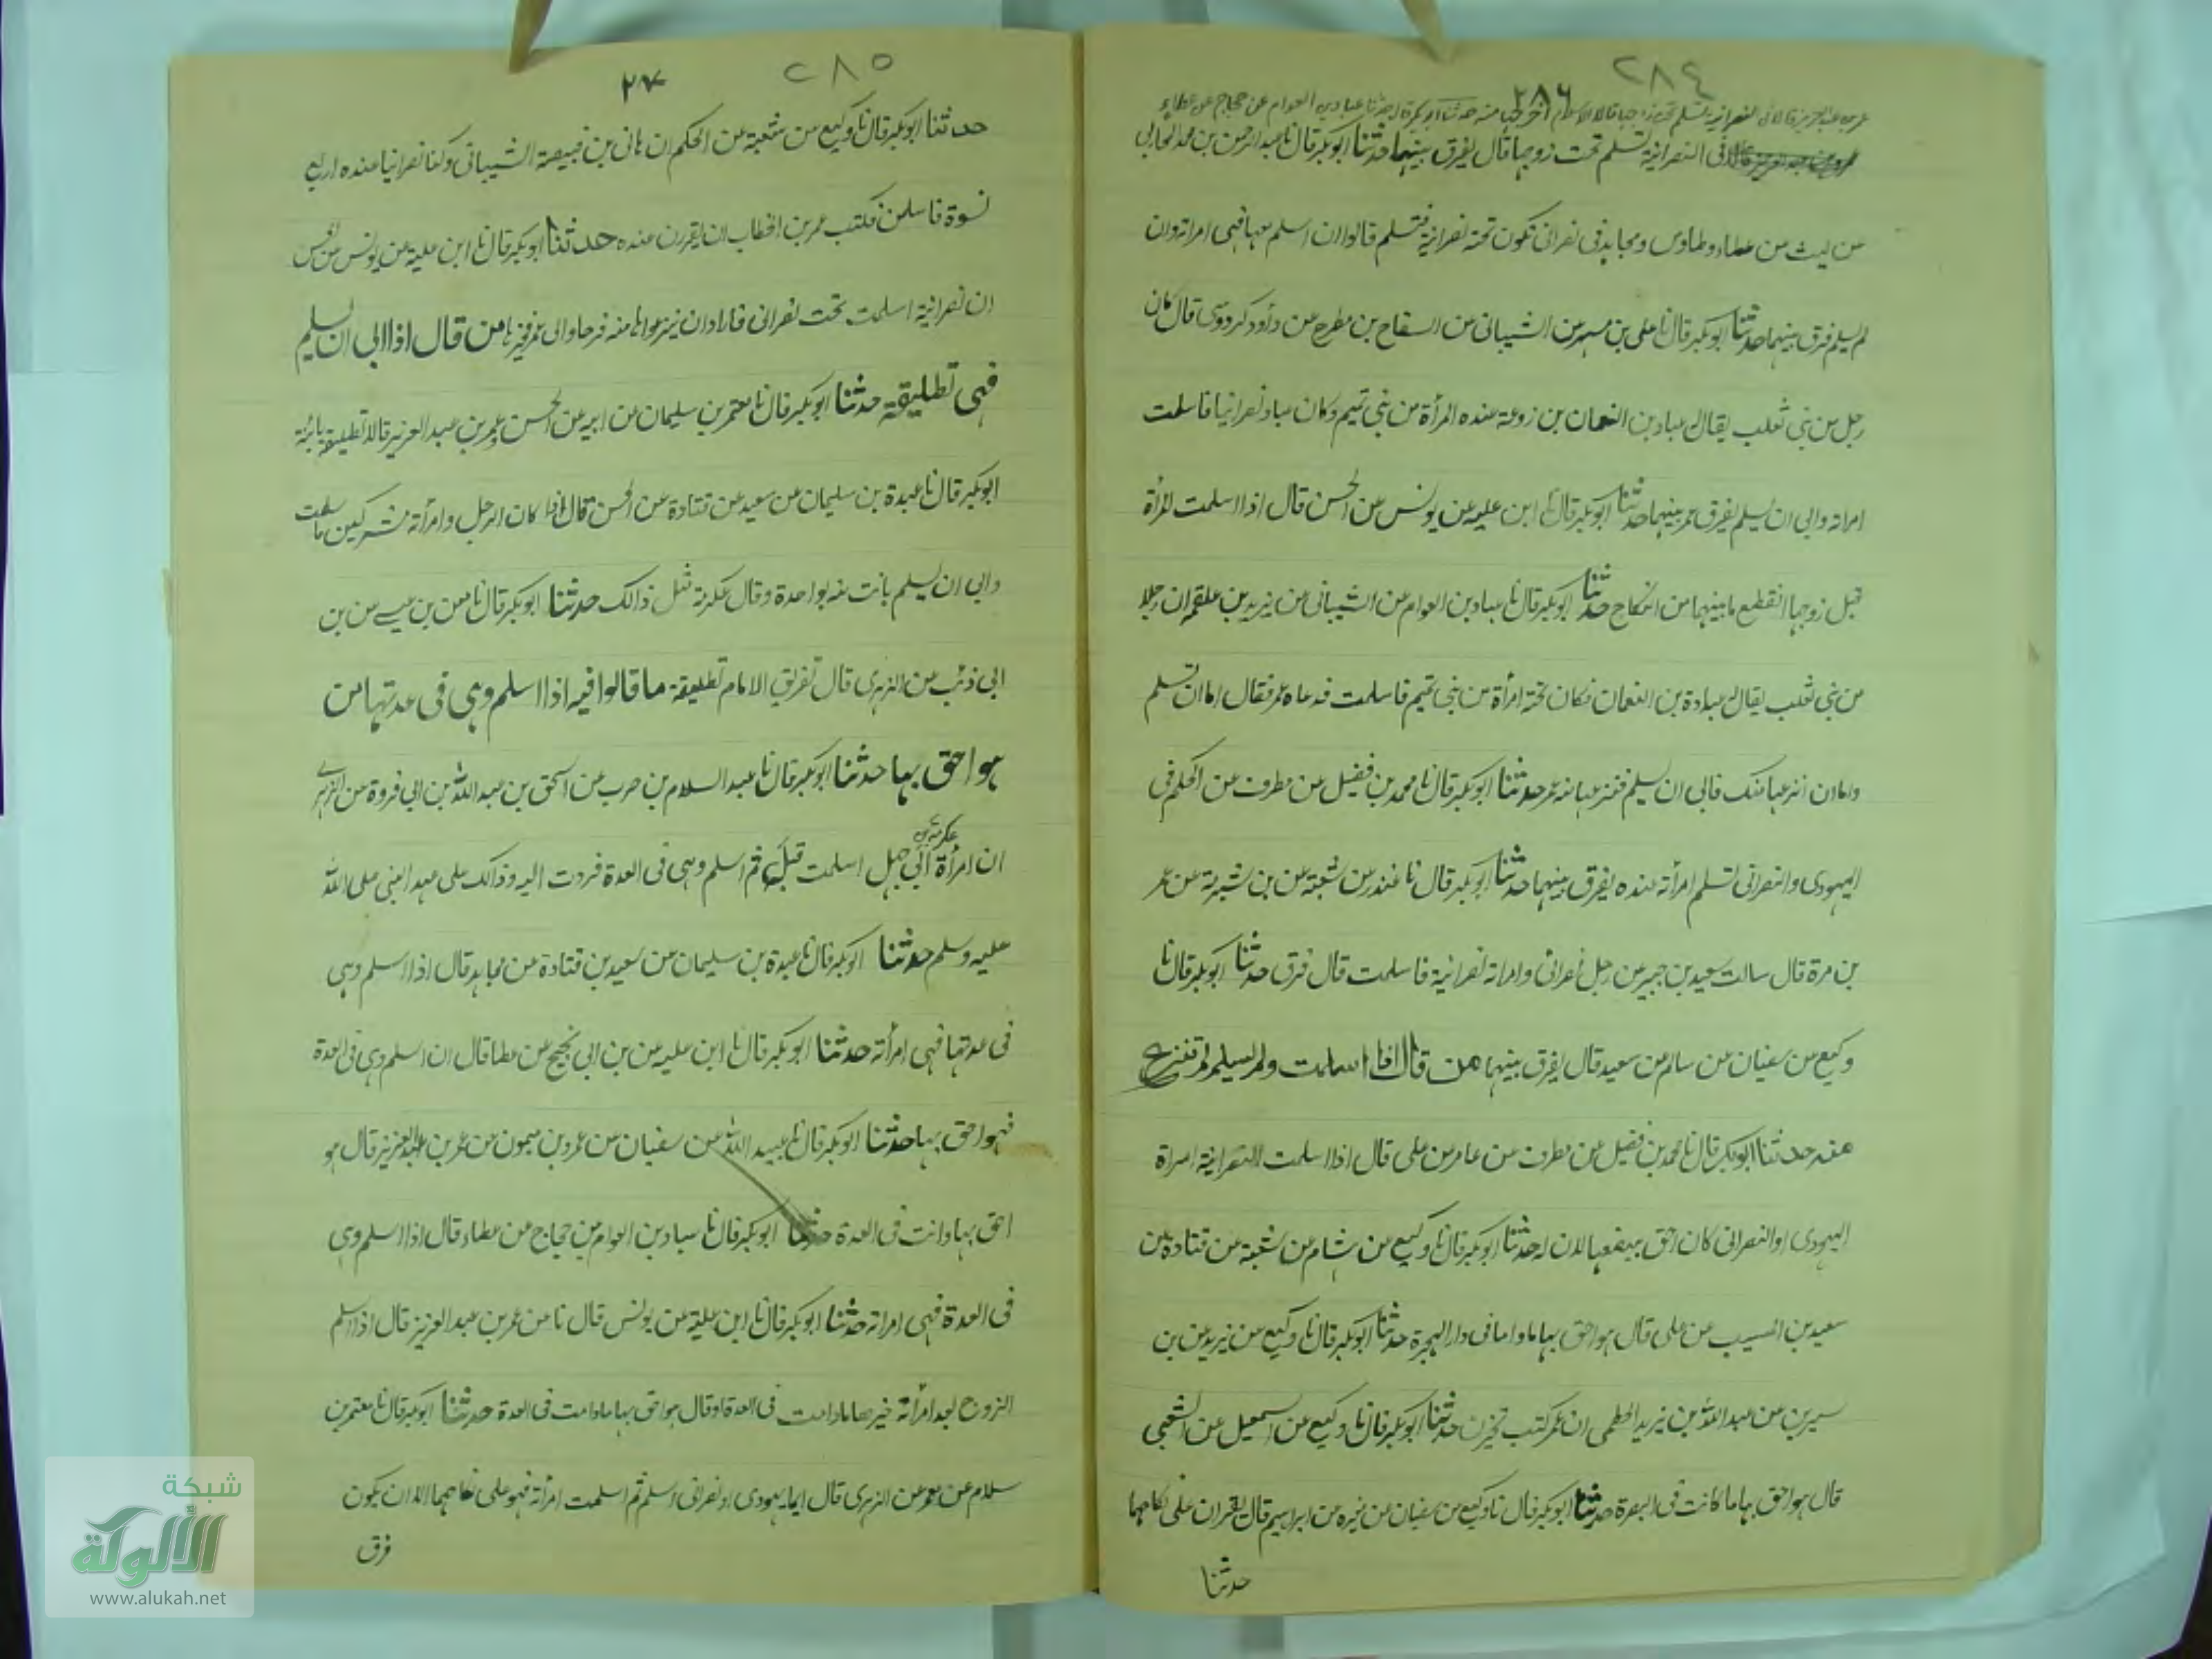 ٢٨٤
٢٨٦
عمر بن عبد العزيز قالا في النصرانية تسلم تحت زوجها قالا الاسلام اخرجها منه حدثنا ابو بكر قال نا عباد بن العوام عن حجاج عن عطاء
في النصرانية تسلم تحت زوجها قال يفرق بينهما حدثنا ابو بكر قال نا عبد الرحمن بن محمد المحاربي
عن ليث عن عطاء وطاوس ومجاهد في نصراني تكون تحته نصرانية فتسلم قالوا ان اسلم معها فهي امراته وان
لم يسلم فرق بينهما حدثنا ابو بكر قال نا علي بن مسهر عن الشيباني عن السفاح بن مطرح عن داود كردوس قال كان
رجل من بني تغلب يقال عباد بن النعمان بن زرعة عنده امرأة من بني تميم وكان عباد نصرانيا فاسلمت
امراته وابى ان يسلم يفرق عمر بينهما حدثنا ابو بكر قال نا ابن علية عن يونس عن الحسن قال اذا اسلمت المرأة
قبل زوجها انقطع ما بينهما من النكاح حدثنا ابو بكر قال نا عباد بن العوام عن الشيباني عن يزيد بن علقمه ان رجلا
من بني تغلب يقال عبادة بن النعمان فكان تحته امرأة من بني تميم فاسلمت فدعاه عمر فقال اما ان تسلم
واما ان انزعها منك فابى ان يسلم فنزعها منه عمر حدثنا ابو بكر قال نا محمد بن فضيل عن مطرف عن الحكم في
اليهودي والنصراني تسلم امرأته عنده يفرق بينهما حدثنا ابو بكر قال نا غندر عن شعبة عن بن شبرمة عن عمر
بن مرة قال سالت سعيد بن جبير عن رجل نصراني وامراته نصرانية فاسلمت قال فرق حدثنا ابو بكر قال نا
وكيع عن سفيان عن سالم عن سعيد قال يفرق بينهما من قال اذا اسلمت ولم يسلم لم تنزع
منه حدثنا ابو بكر قال نا محمد بن فضيل عن مطرف عن عامر عن علي قال اذا اسلمت النصرانية امراة
اليهودي او النصراني كان احق ببضعها لان له حدثنا ابو بكر قال نا وكيع عن هشام عن شعبة عن قتادة عن
سعيد بن المسيب عن علي قال هو احق بها ما داما في دار الهجرة حدثنا ابو بكر قال نا وكيع عن يزيد عن بن
سيرين عن عبد الله بن يزيد الخطمي ان عمر كتب تخيرن حدثنا ابو بكر قال نا وكيع عن اسمعيل عن الشعبي
قال هو احق بها ما كانت في البصرة حدثنا ابو بكر قال نا وكيع عن سفيان عن مغيره عن ابراهيم قال يقران على نكاحهما
حدثنا
٢٨٥
حدثنا ابو بكر قال نا وكيع عن شعبة عن الحكم ان هاني بن قبيصة الشيباني وكنا نصرانيا عنده اربع
نسوة فاسلمن فكتب عمر بن الخطاب ان يقررن عنده حدثنا ابو بكر قال نا ابن علية عن يونس عن
ان نصرانية اسلمت تحت نصراني فارادان ينزعوا ها منه فرحاوا الى عمر فخيرها من قال اذا ابى ان يسلم
فهي تطليقة حدثنا ابو بكر قال نا معتمر بن سليمان عن ابيه عن الحسن وعمر بن عبد العزيز قالا تطليقة بائنة
ابو بكر قال نا عبدة بن سليمان عن سعيد عن قتادة عن الحسن قال اذا كان الرجل وامرأته مشركين فاسلمت
وابى ان يسلم بانت منه بواحدة وقال عكرمة مثل ذالك حدثنا ابو بكر قال نا معن بن عيسى عن بن
ابي ذئب عن الزهري قال تفريق الامام تطليقة ما قالوا فيه اذا اسلم وهي في عدتها من
هو احق بها حدثنا ابو بكر قال نا عبد السلام بن حرب عن اسحق بن عبد الله بن ابي فروة عن الزهري
ان امرأة عكرمة بن ابي جهل اسلمت قبله ثم اسلم وهي في العدة فردت اليه وذالك على عهد النبي صلى الله
عليه وسلم حدثنا ابو بكر قال نا عبدة بن سليمان عن سعيد بن قتادة عن مجاهد قال اذا اسلم وهي
في عدتها فهي امرأته حدثنا ابو بكر قال نا ابن عليه عن بن ابي نجيح عن عطا قال ان اسلم وهي في العدة
فهو احق بها حدثنا ابو بكر قال نا عبيد الله عن سفيان عن عمرو بن ميمون عن عمر بن عبد العزيز قال هو
احق بها وانت في العدة حدثنا ابو بكر قال نا عباد بن العوام عن حجاج عن عطاء قال اذا اسلم وهي
في العدة فهي امراته حدثنا ابو بكر قال نا ابن علية عن يونس قال نا عن عمر بن عبد العزيز قال اذا اسلم
الزوج بعد امرأته خيرها مادامت في العدة او قال هو احق بها مادامت في العدة حدثنا ابو بكر قال نا معتمر بن
سلام عن معمر عن الزهري قال ايما يهودي او نصراني اسلم ثم اسلمت امرأته فهو على نكاحهما الا ان يكون
فرق
شبكة
الألوكة
www.alukah.net